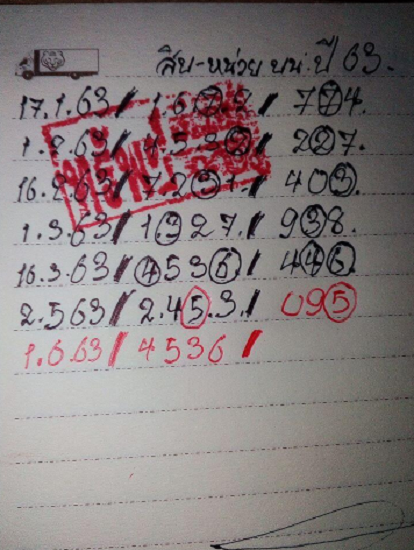 สิบ-หน่วย บน ปี 63.
17.1.63/ 1.6.7.2./ 774.
1.2.63/ 4532/ 227.
16.2.63/ 7231./ 403.
1.3.63/ 1327./ 938.
16.3.63/ 4536/ 446.
2.563/ 2.45.3./ 095
1.6.63/ 4536 /